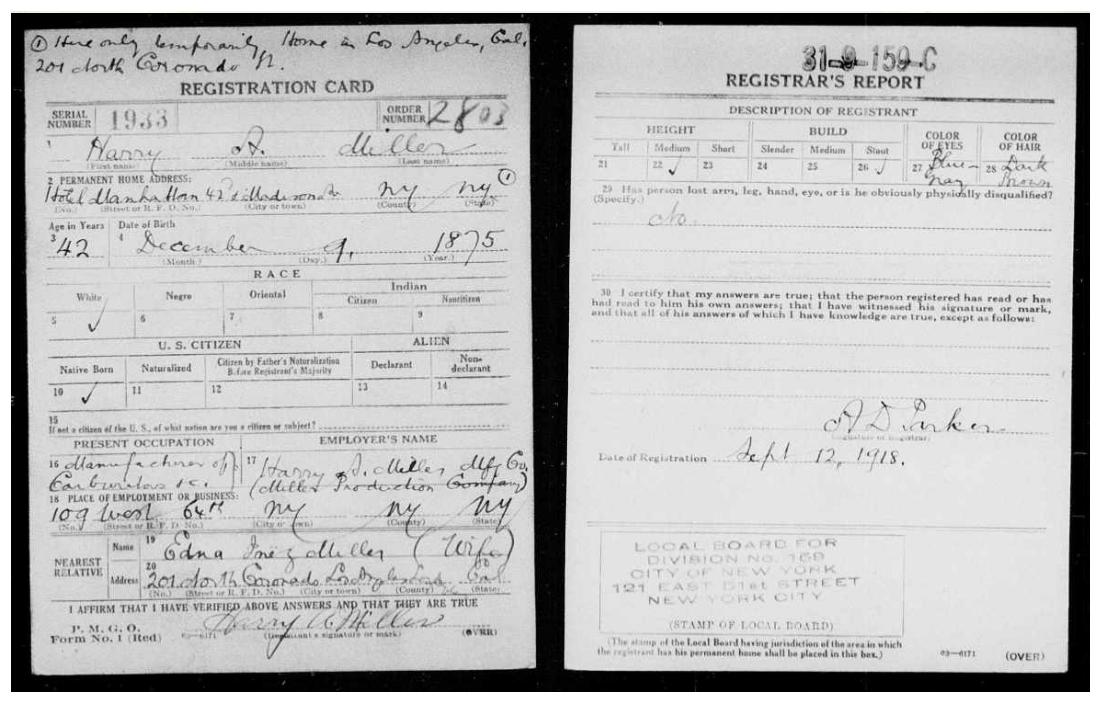 ① Here only temporarily, Home in Los Angeles, Cal.
201 North Coronado St.
REGISTRATION CARD
SERIAL NUMBER 1933 ORDER NUMBER 2803
1 Harry A. Miller
(First name) (Middle name) (Last name)
2 PERMANENT HOME ADDRESS:
Hotel Manhattan 42 & Madison NY NY ①
(No.) (Street or R. F. D. No.) (City or town) (County) (State)
Age in Years Date of Birth
3 42 4 December 9, 1875
(Month.) (Day.) (Year.)
RACE
White Negro Oriental Indian
Citizen Noncitizen
5 ✓ 6 7 8 9
U. S. CITIZEN ALIEN
Native Born Naturalized Citizen by Father's Naturalization Before Registrant's Majority Declarant Non-declarant
10 ✓ 11 12 13 14
15
If not a citizen of the U. S., of what nation are you a citizen or subject?
PRESENT OCCUPATION EMPLOYER'S NAME
16 Manufacturer of 17 Harry A. Miller Mfg Co.
Carburetors &c. (Miller Production Company)
18 PLACE OF EMPLOYMENT OR BUSINESS:
109 West 64th NY NY NY
(No.) (Street or R. F. D. No.) (City or town) (County) (State)
NEAREST RELATIVE Name 19 Edna Inez Miller (Wife)
Address 20 201 North Coronado Los Angeles Cal
(No.) (Street or R. F. D. No.) (City or town) (County) (State)
I AFFIRM THAT I HAVE VERIFIED ABOVE ANSWERS AND THAT THEY ARE TRUE
P. M. G. O.
Form No. 1 (Red) 03—6171 Harry A Miller
(Registrant's signature or mark) (OVER)
31-9-159-C
REGISTRAR'S REPORT
DESCRIPTION OF REGISTRANT
HEIGHT BUILD COLOR OF EYES COLOR OF HAIR
Tall Medium Short Slender Medium Stout
21 22 ✓ 23 24 25 26 ✓ 27 Blue-Gray 28 Dark Brown
29 Has person lost arm, leg, hand, eye, or is he obviously physically disqualified?
(Specify.)
No.
30 I certify that my answers are true; that the person registered has read or has
had read to him his own answers; that I have witnessed his signature or mark,
and that all of his answers of which I have knowledge are true, except as follows:
A D Parker
(Signature of Registrar)
Date of Registration Sept 12, 1918.
LOCAL BOARD FOR
DIVISION No. 159
CITY OF NEW YORK
121 EAST 51st STREET
NEW YORK CITY
(STAMP OF LOCAL BOARD)
(The stamp of the Local Board having jurisdiction of the area in which
the registrant has his permanent home shall be placed in this box.)
03—6171 (OVER)